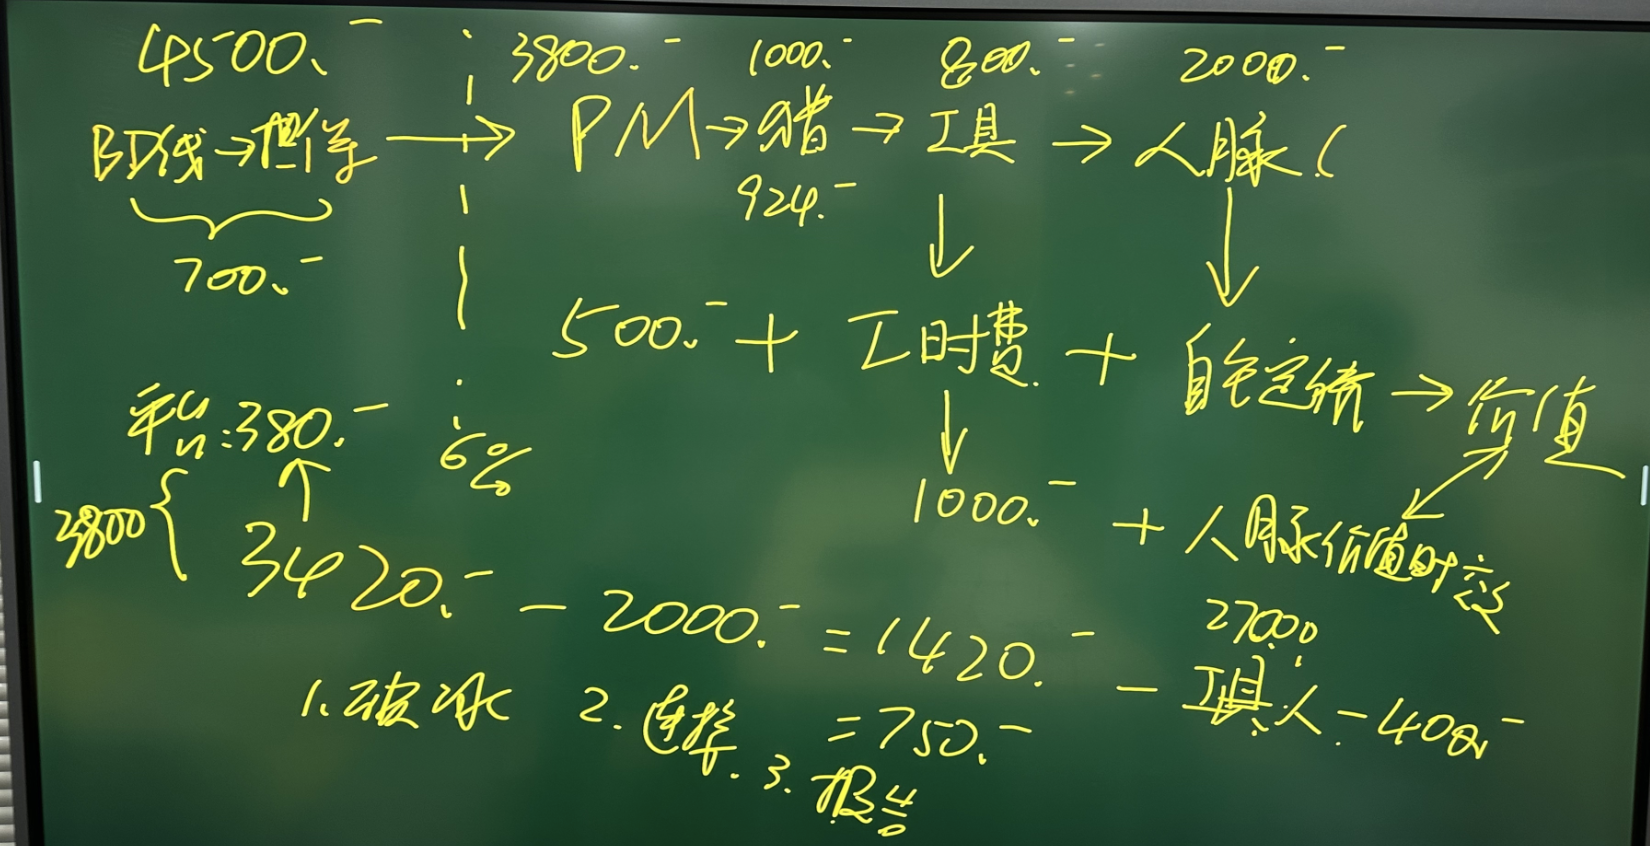 4500.- 3800.- 1000.- 800.- 2000.-
BD线→担保 → PM→猎→工具→人脉(
924.-
700.-
500.- + 工时费 + 自 → 价值
利:380.- 6%
1000.- + 人脉价值时效
3800{ 3420.- - 2000.- = 1420.- - 工具人 - 400.-
270.
1.破冰 2.连接. = 750.-
3.报告